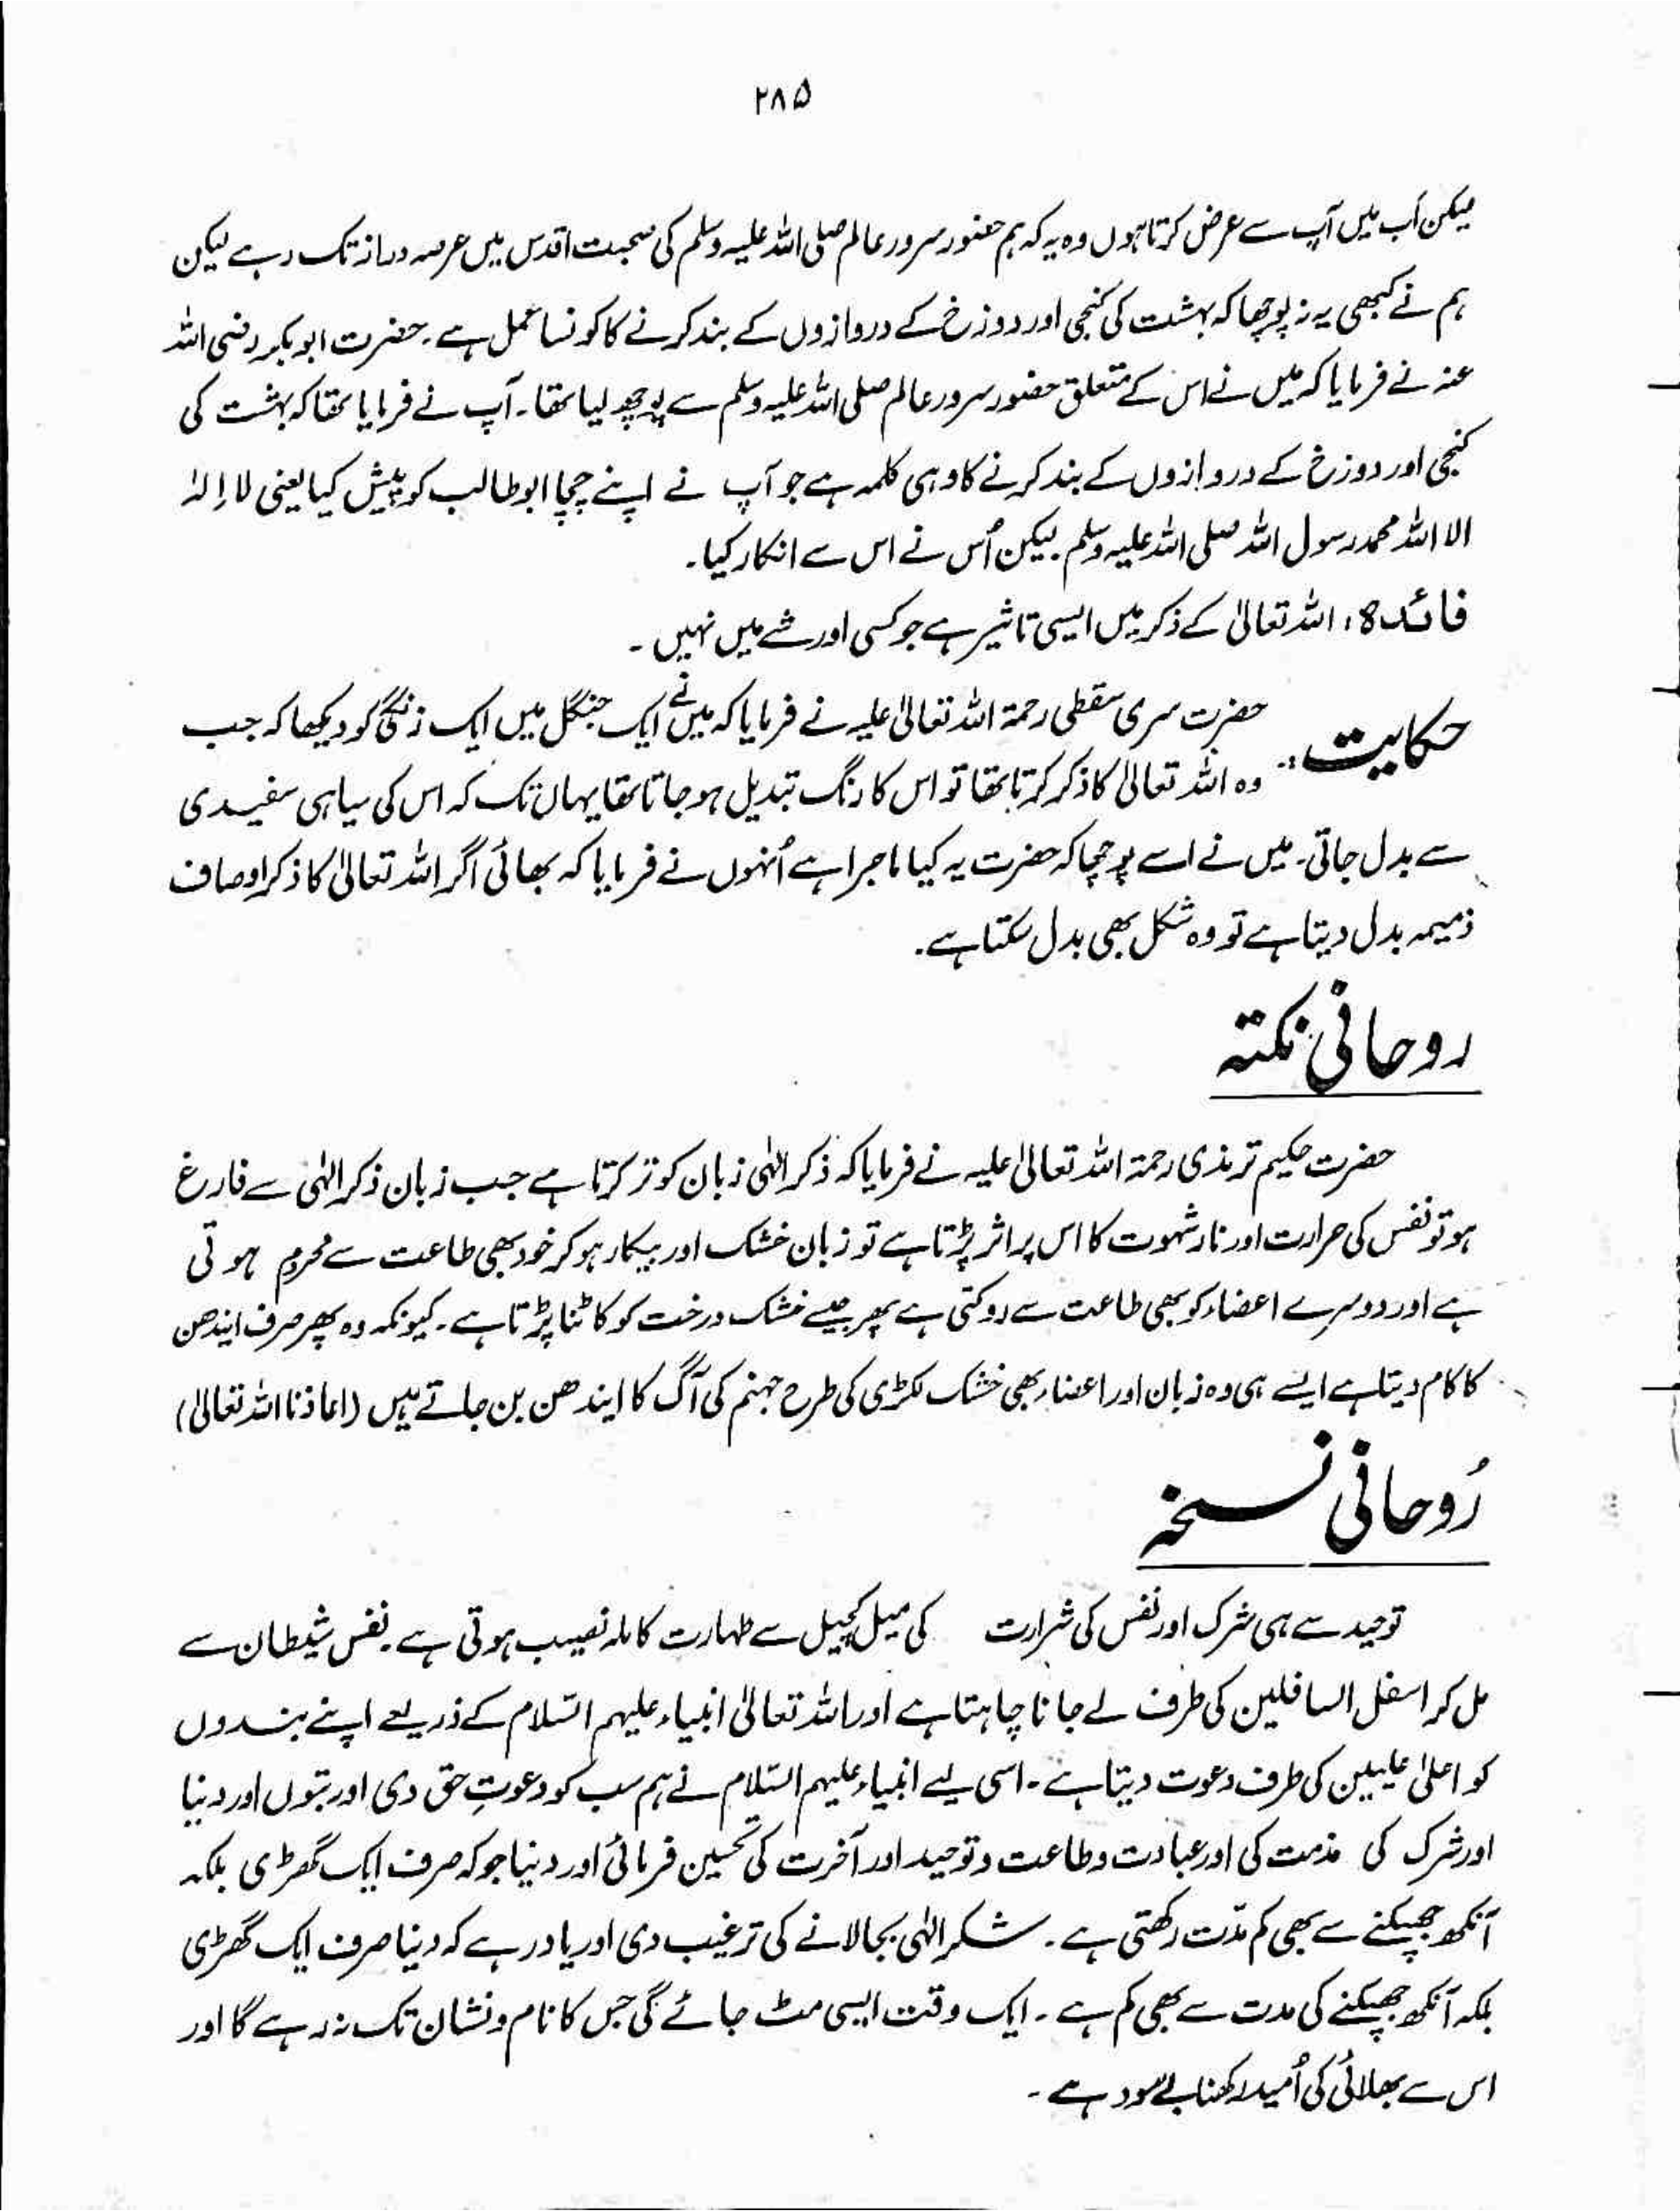 ۲۸۵
لیکن اَب میں آپ سے عرض کرتا ہوں وہ یہ کہ ہم حضور سرور عالم صلی اللہ علیہ وسلم کی صحبت اقدس میں عرصہ دراز تک رہے لیکن
ہم نے کبھی یہ نہ پوچھا کہ بہشت کی کنجی اور دوزخ کے دروازوں کے بند کرنے کا کونسا عمل ہے۔ حضرت ابوبکر رضی اللہ
عنہ نے فرمایا کہ میں نے اس کے متعلق حضور سرور عالم صلی اللہ علیہ وسلم سے پوچھ لیا تھا۔ آپ نے فرمایا تھا کہ بہشت کی
کنجی اور دوزخ کے دروازوں کے بند کرنے کا وہی کلمہ ہے جو آپ نے اپنے چچا ابوطالب کو پیش کیا یعنی لا اِلٰہ
الا اللہ محمد رسول اللہ صلی اللہ علیہ وسلم لیکن اُس نے اس سے انکار کیا۔
فائدہ: اللہ تعالیٰ کے ذکر میں ایسی تاثیر ہے جو کسی اور شے میں نہیں۔
حکایت: حضرت سری سقطی رحمۃ اللہ تعالیٰ علیہ نے فرمایا کہ میں نے ایک جنگل میں ایک زنگی کو دیکھا کہ جب
وہ اللہ تعالیٰ کا ذکر کرتا تھا تو اس کا رنگ تبدیل ہو جاتا تھا یہاں تک کہ اس کی سیاہی سفیدی
سے بدل جاتی۔ میں نے اسے پوچھا کہ حضرت یہ کیا ماجرا ہے اُنہوں نے فرمایا کہ بھائی اگر اللہ تعالیٰ کا ذکر اوصاف
ذمیمہ بدل دیتا ہے تو وہ شکل بھی بدل سکتا ہے۔
روحانی نکتہ
حضرت حکیم ترمذی رحمۃ اللہ تعالیٰ علیہ نے فرمایا کہ ذکر الٰہی زبان کو تر کرتا ہے جب زبان ذکر الٰہی سے فارغ
ہو تو نفس کی حرارت اور نار شہوت کا اس پر اثر پڑتا ہے تو زبان خشک اور بیکار ہو کر خود بھی طاعت سے محروم ہوتی
ہے اور دوسرے اعضاء کو بھی طاعت سے روکتی ہے پھر جیسے خشک درخت کو کاٹنا پڑتا ہے۔ کیونکہ وہ پھر صرف ایندھن
کا کام دیتا ہے ایسے ہی وہ زبان اور اعضاء بھی خشک لکڑی کی طرح جہنم کی آگ کا ایندھن بن جاتے ہیں (اعاذنا اللہ تعالیٰ)
رُوحانی نسخہ
توحید سے ہی شرک اور نفس کی شرارت کی میل کچیل سے طہارت کاملہ نصیب ہوتی ہے۔ نفس شیطان سے
مل کر اسفل السافلین کی طرف لے جانا چاہتا ہے اور اللہ تعالیٰ انبیاء علیہم السّلام کے ذریعے اپنے بندوں
کو اعلیٰ علیین کی طرف دعوت دیتا ہے۔ اسی لیے انبیاء علیہم السّلام نے ہم سب کو دعوتِ حق دی اور بتوں اور دنیا
اور شرک کی مذمت کی اور عبادت و طاعت و توحید اور آخرت کی تحسین فرمائی اور دنیا جو کہ صرف ایک گھڑی بلکہ
آنکھ جھپکنے سے بھی کم مدّت رکھتی ہے۔ شکر الٰہی بجا لانے کی ترغیب دی اور یاد رہے کہ دنیا صرف ایک گھڑی
بلکہ آنکھ جھپکنے کی مدت سے بھی کم ہے۔ ایک وقت ایسی مٹ جائے گی جس کا نام و نشان تک نہ رہے گا اور
اس سے بھلائی کی اُمید رکھنا بے سود ہے۔